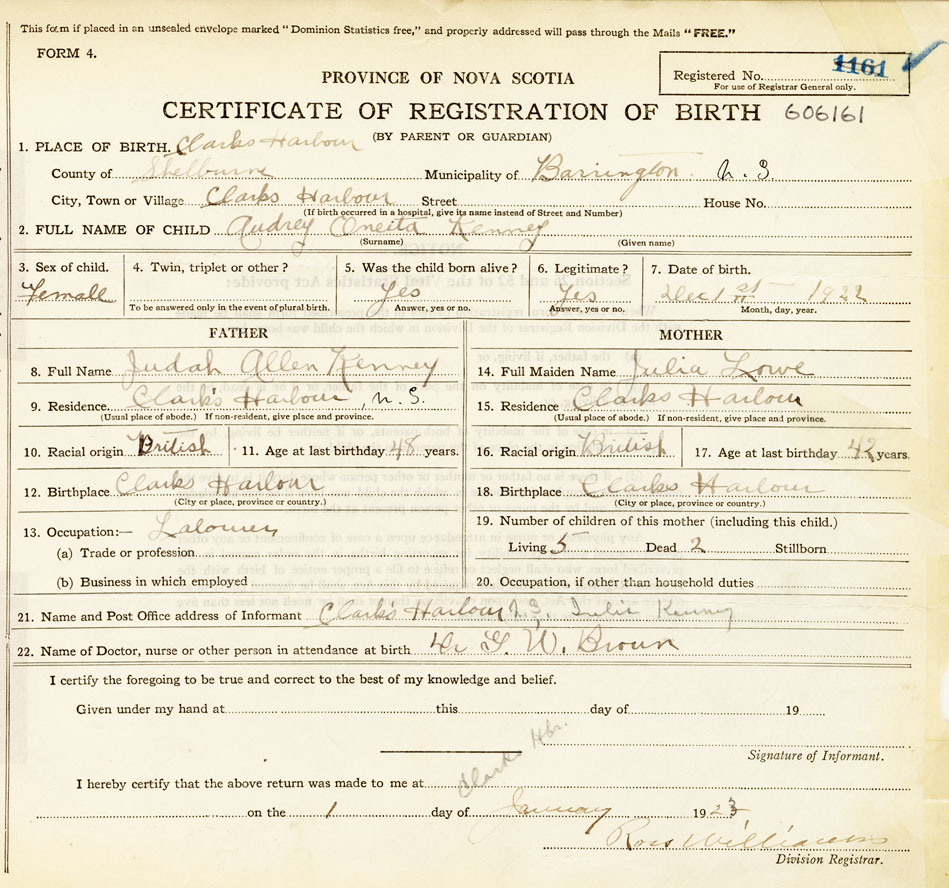 This form if placed in an unsealed envelope marked "Dominion Statistics free," and properly addressed will pass through the Mails "FREE."
FORM 4.
PROVINCE OF NOVA SCOTIA
Registered No. 1161
For use of Registrar General only.
CERTIFICATE OF REGISTRATION OF BIRTH 606161
(BY PARENT OR GUARDIAN)
1. PLACE OF BIRTH. Clarks Harbour
County of Shelburne Municipality of Barrington. N. S.
City, Town or Village Clarks Harbour Street House No.
(If birth occurred in a hospital, give its name instead of Street and Number)
2. FULL NAME OF CHILD Audrey Oneita Kenney
(Surname) (Given name)
3. Sex of child. 4. Twin, triplet or other? 5. Was the child born alive? 6. Legitimate? 7. Date of birth.
Femall Yes Yes Dec 1 1922
To be answered only in the event of plural birth. Answer, yes or no. Answer, yes or no. Month, day, year.
FATHER MOTHER
8. Full Name Judah Allen Kenney 14. Full Maiden Name Julia Lowe
9. Residence. Clark's Harbour, N. S. 15. Residence Clarks Harbour
(Usual place of abode.) If non-resident, give place and province. (Usual place of abode.) If non-resident, give place and province.
10. Racial origin British 11. Age at last birthday 48 years. 16. Racial origin British 17. Age at last birthday 42 years.
12. Birthplace Clarks Harbour 18. Birthplace Clarks Harbour
(City or place, province or country.) (City or place, province or country.)
13. Occupation:— 19. Number of children of this mother (including this child.)
(a) Trade or profession Living 5 Dead 2 Stillborn
(b) Business in which employed 20. Occupation, if other than household duties
21. Name and Post Office address of Informant Clark's Harbour N.S. Julia Kenney
22. Name of Doctor, nurse or other person in attendance at birth Dr G. W. Broun
I certify the foregoing to be true and correct to the best of my knowledge and belief.
Given under my hand at this day of 19
Signature of Informant.
I hereby certify that the above return was made to me at Clarks Hbr.
on the 1 day of January 1923
Ross Williams
Division Registrar.